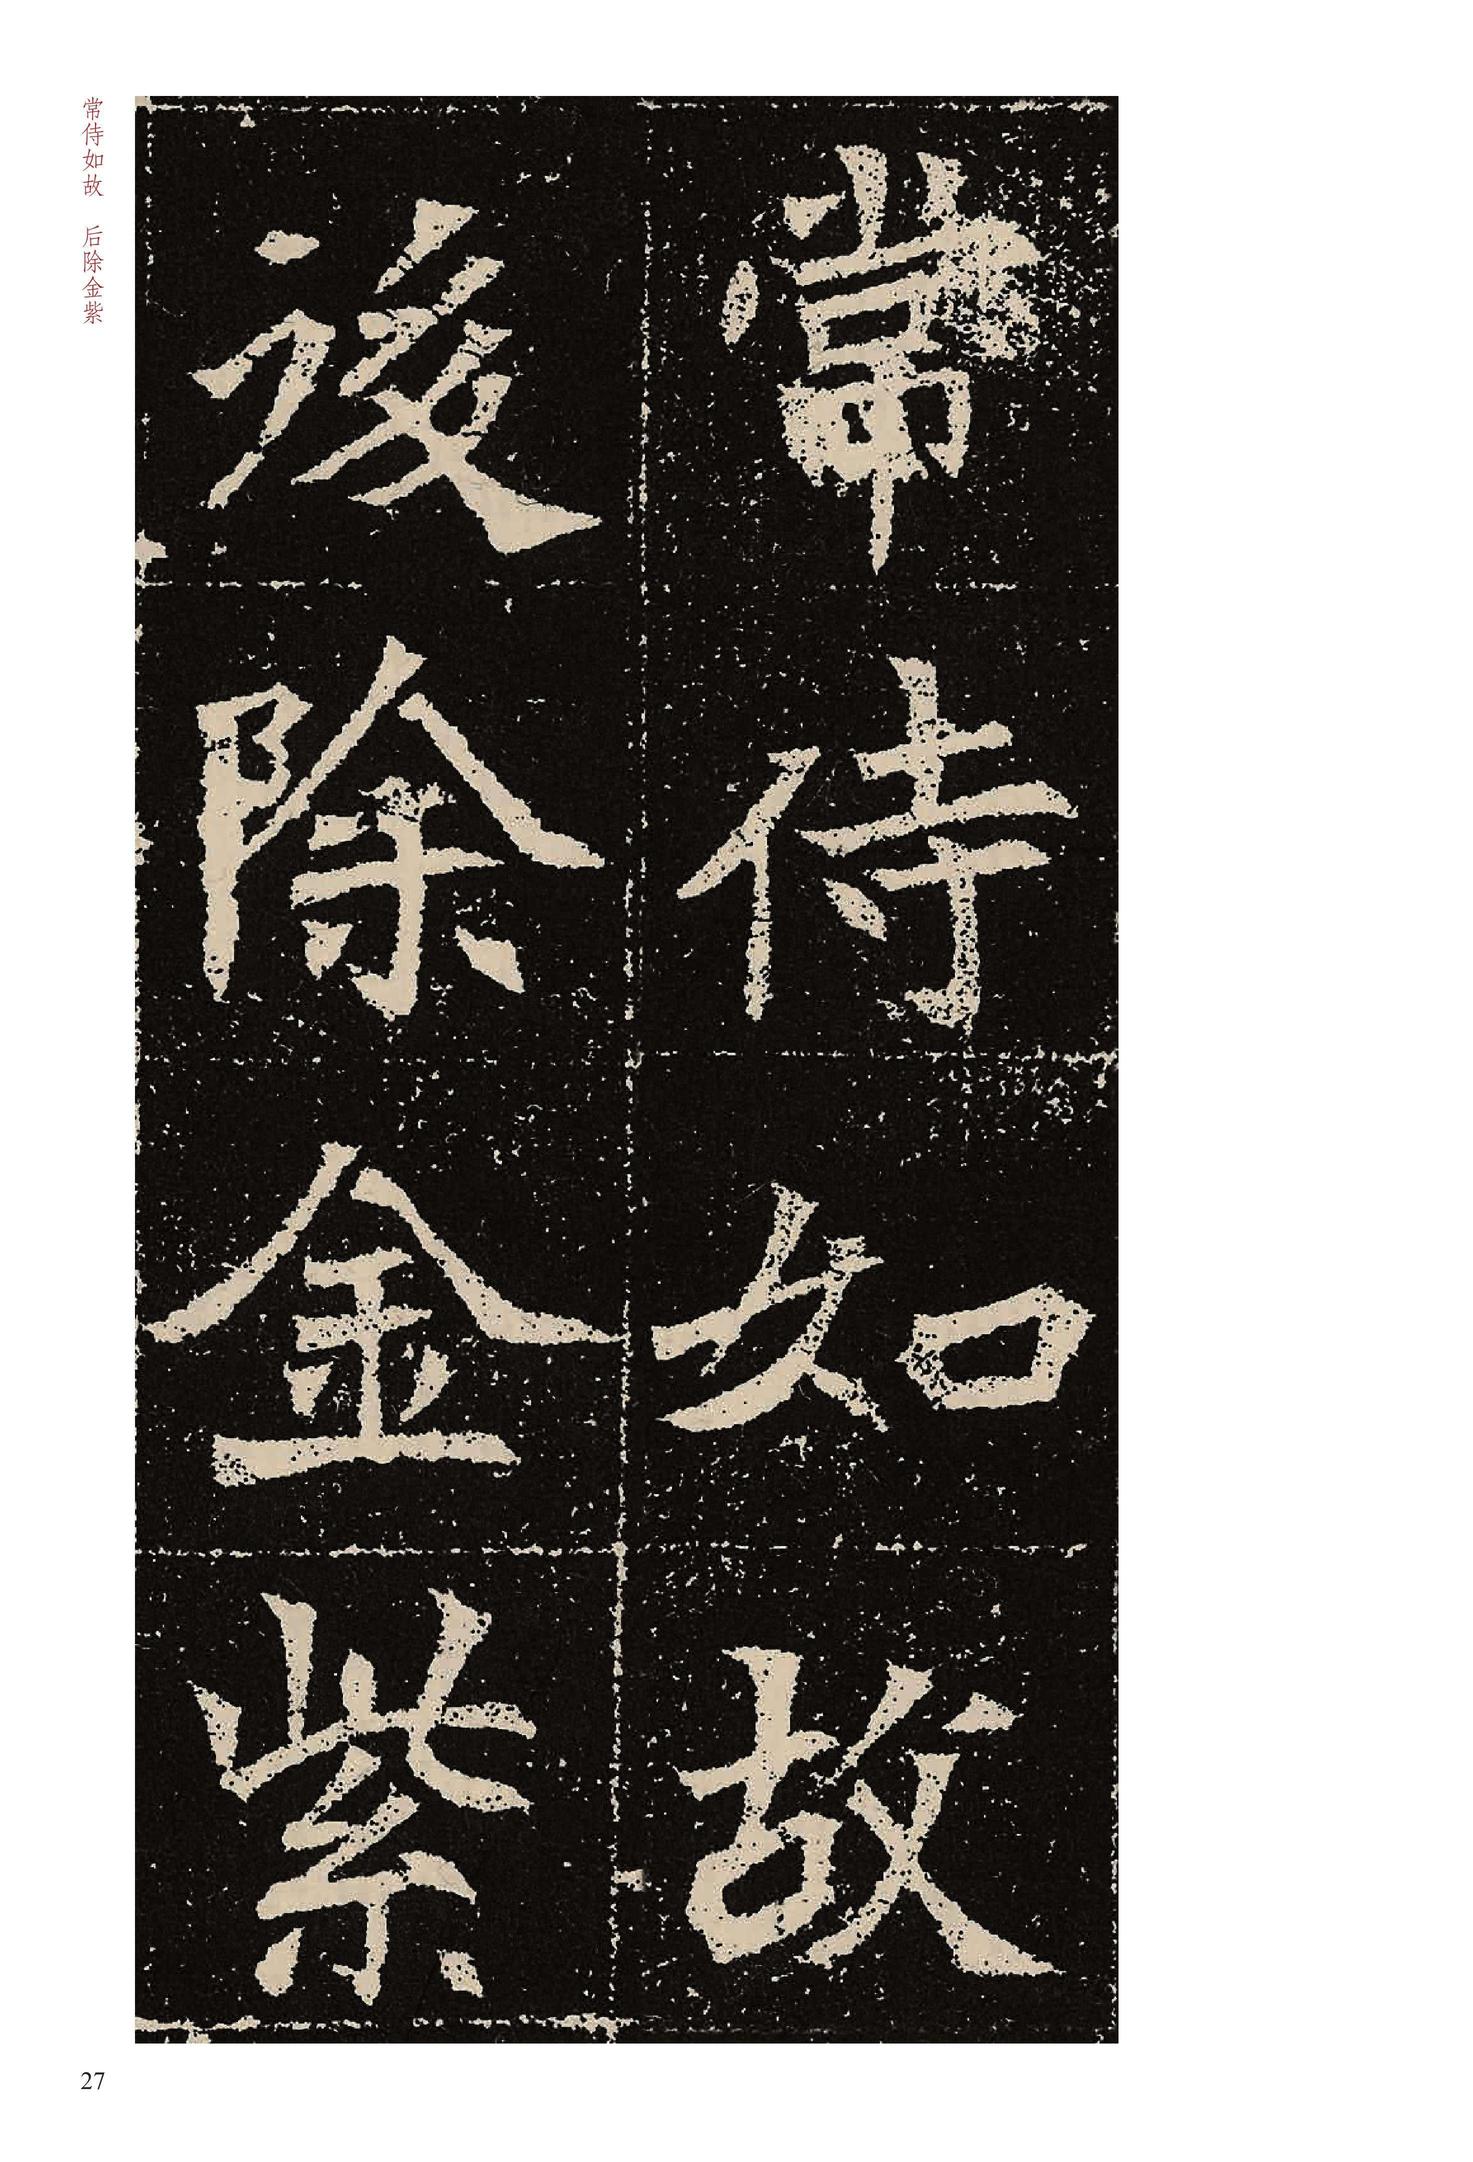 常侍如故
後除金紫
常侍如故 后除金紫
27